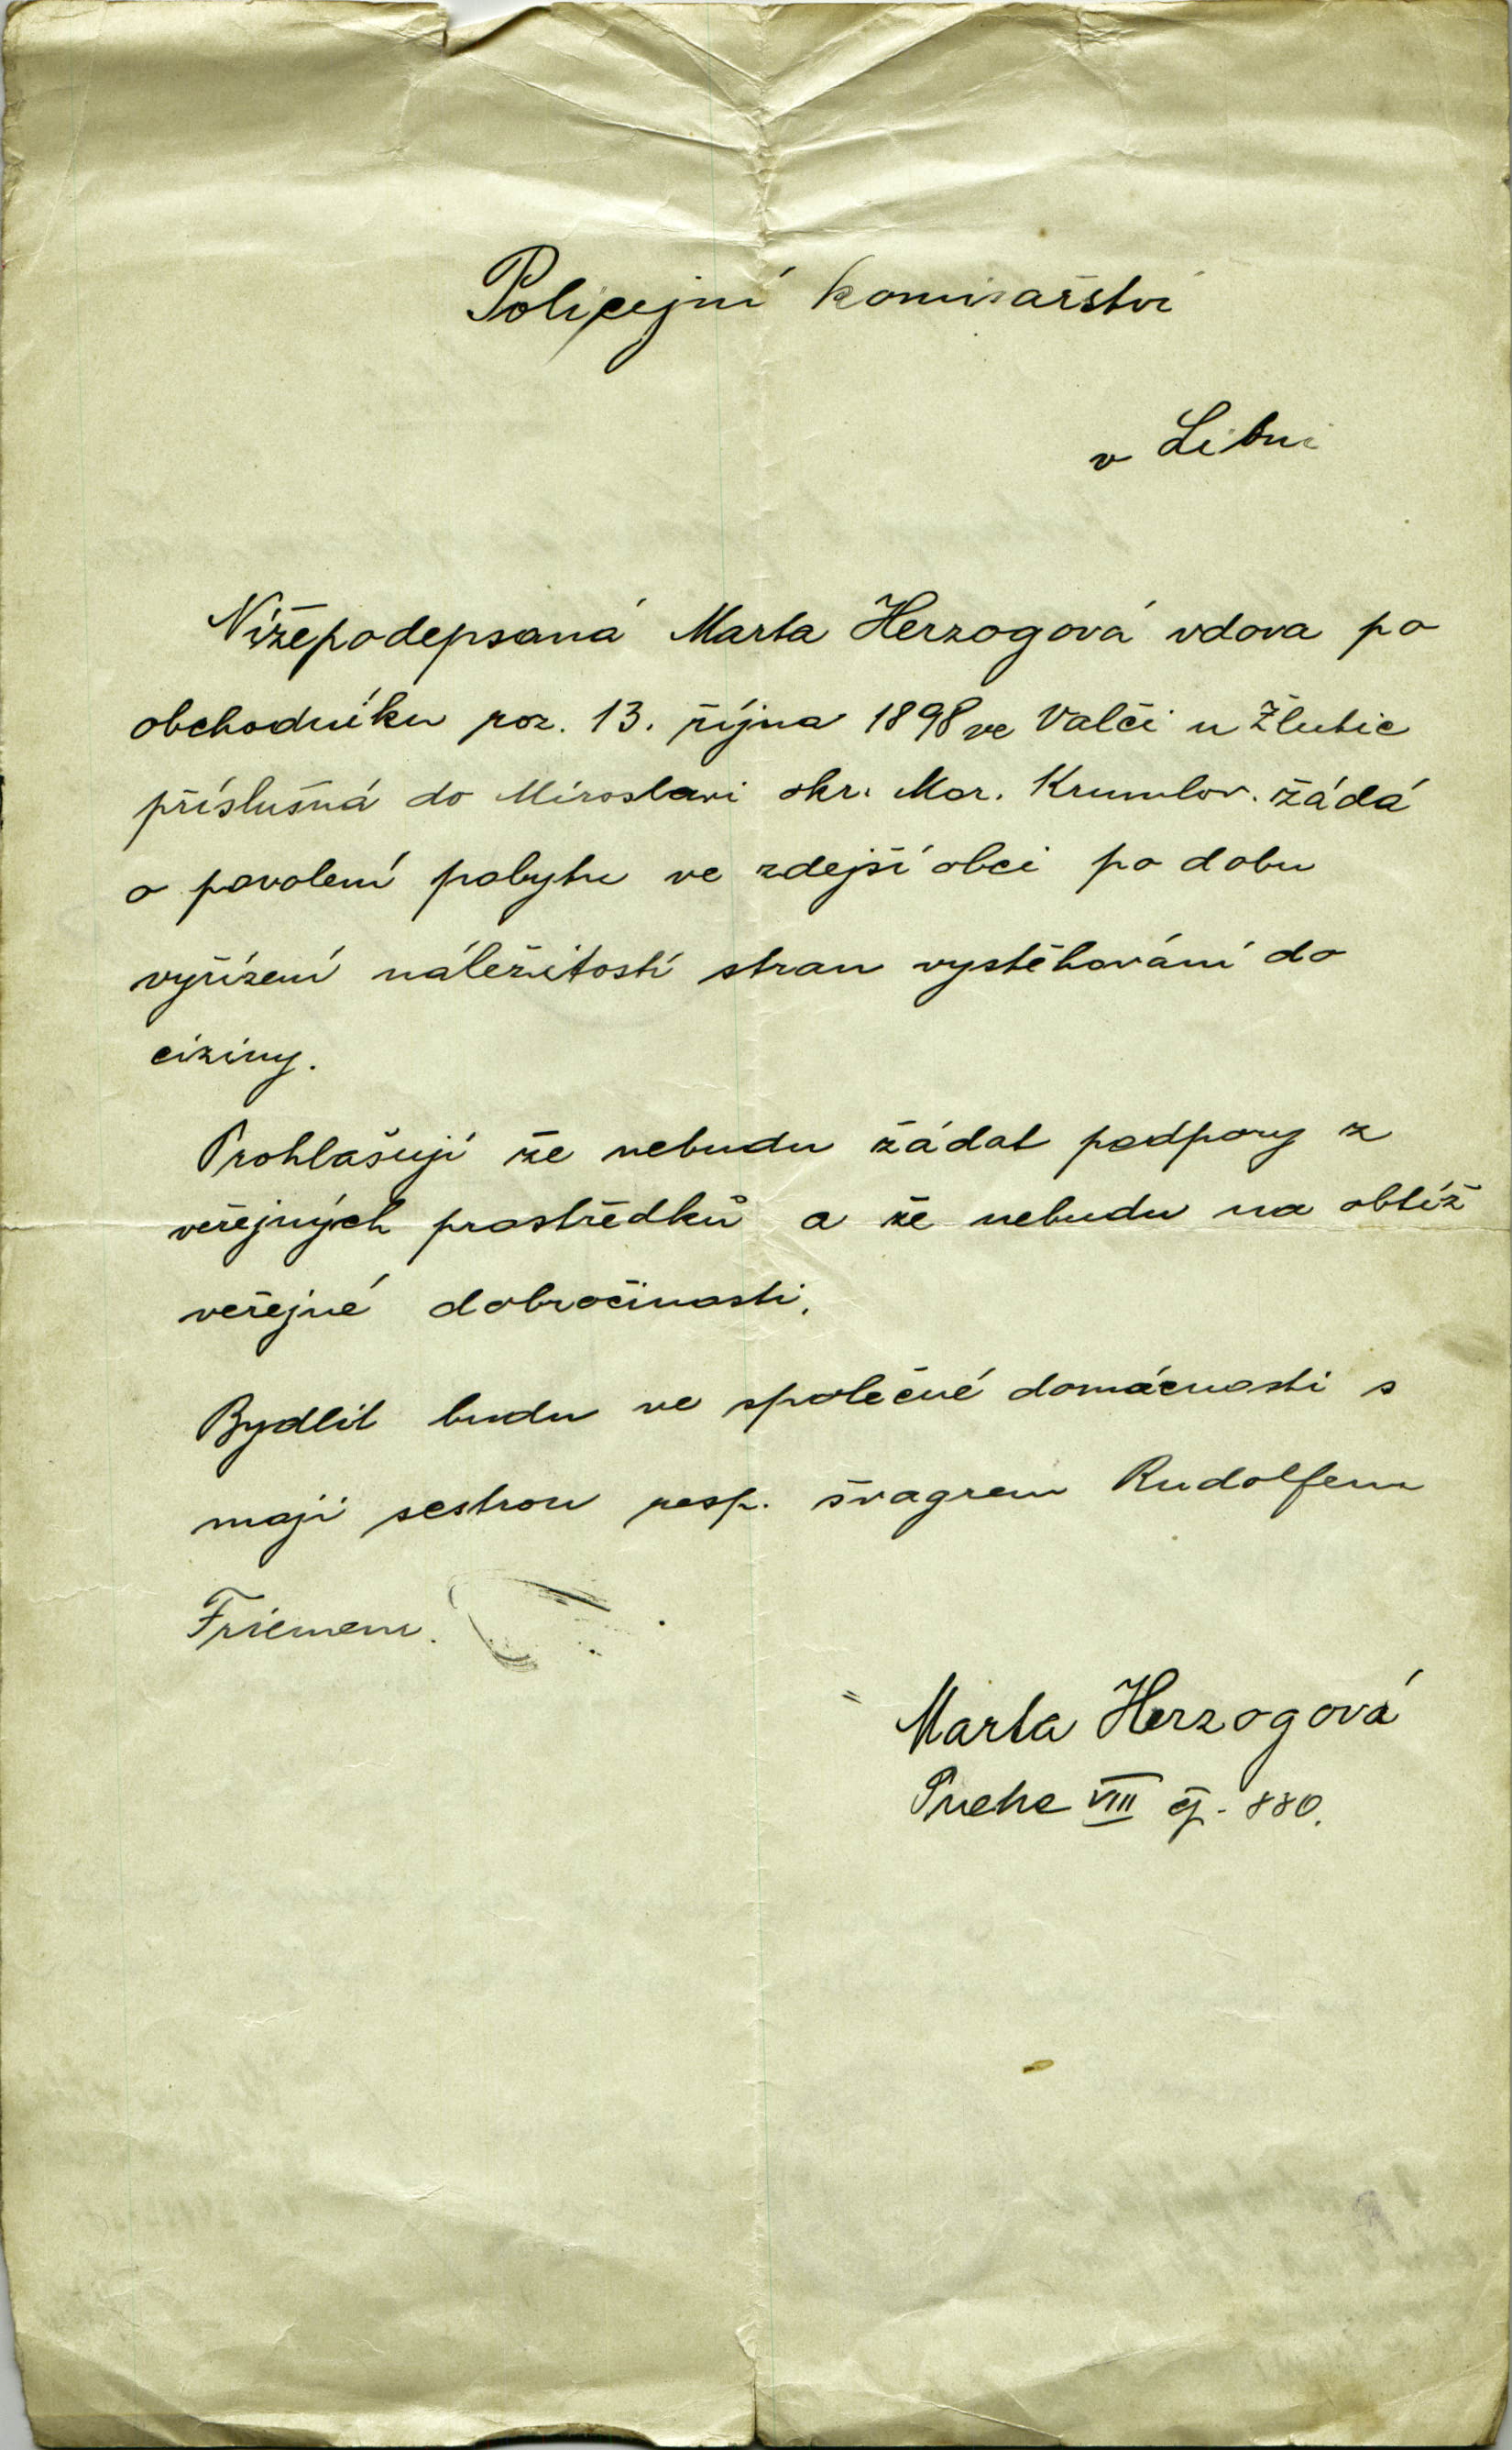 Policejní komisařství
v Libni
Nížepodepsaná Marta Herzogová vdova po
obchodníku roz. 13. října 1898 ve Valči u Žlutic
příslušná do Miroslavi okr. Mor. Krumlov. žádá
o povolení pobytu ve zdejší obci po dobu
vyřízení náležitostí stran vystěhování do
ciziny.
Prohlašuji že nebudu žádat podpory z
veřejných prostředků a že nebudu na obtíž
veřejné dobročinosti.
Bydlit budu ve společné domácnosti s
moji sestrou resp. švagrem Rudolfem
Marta Herzogová
VIII čp. 880.